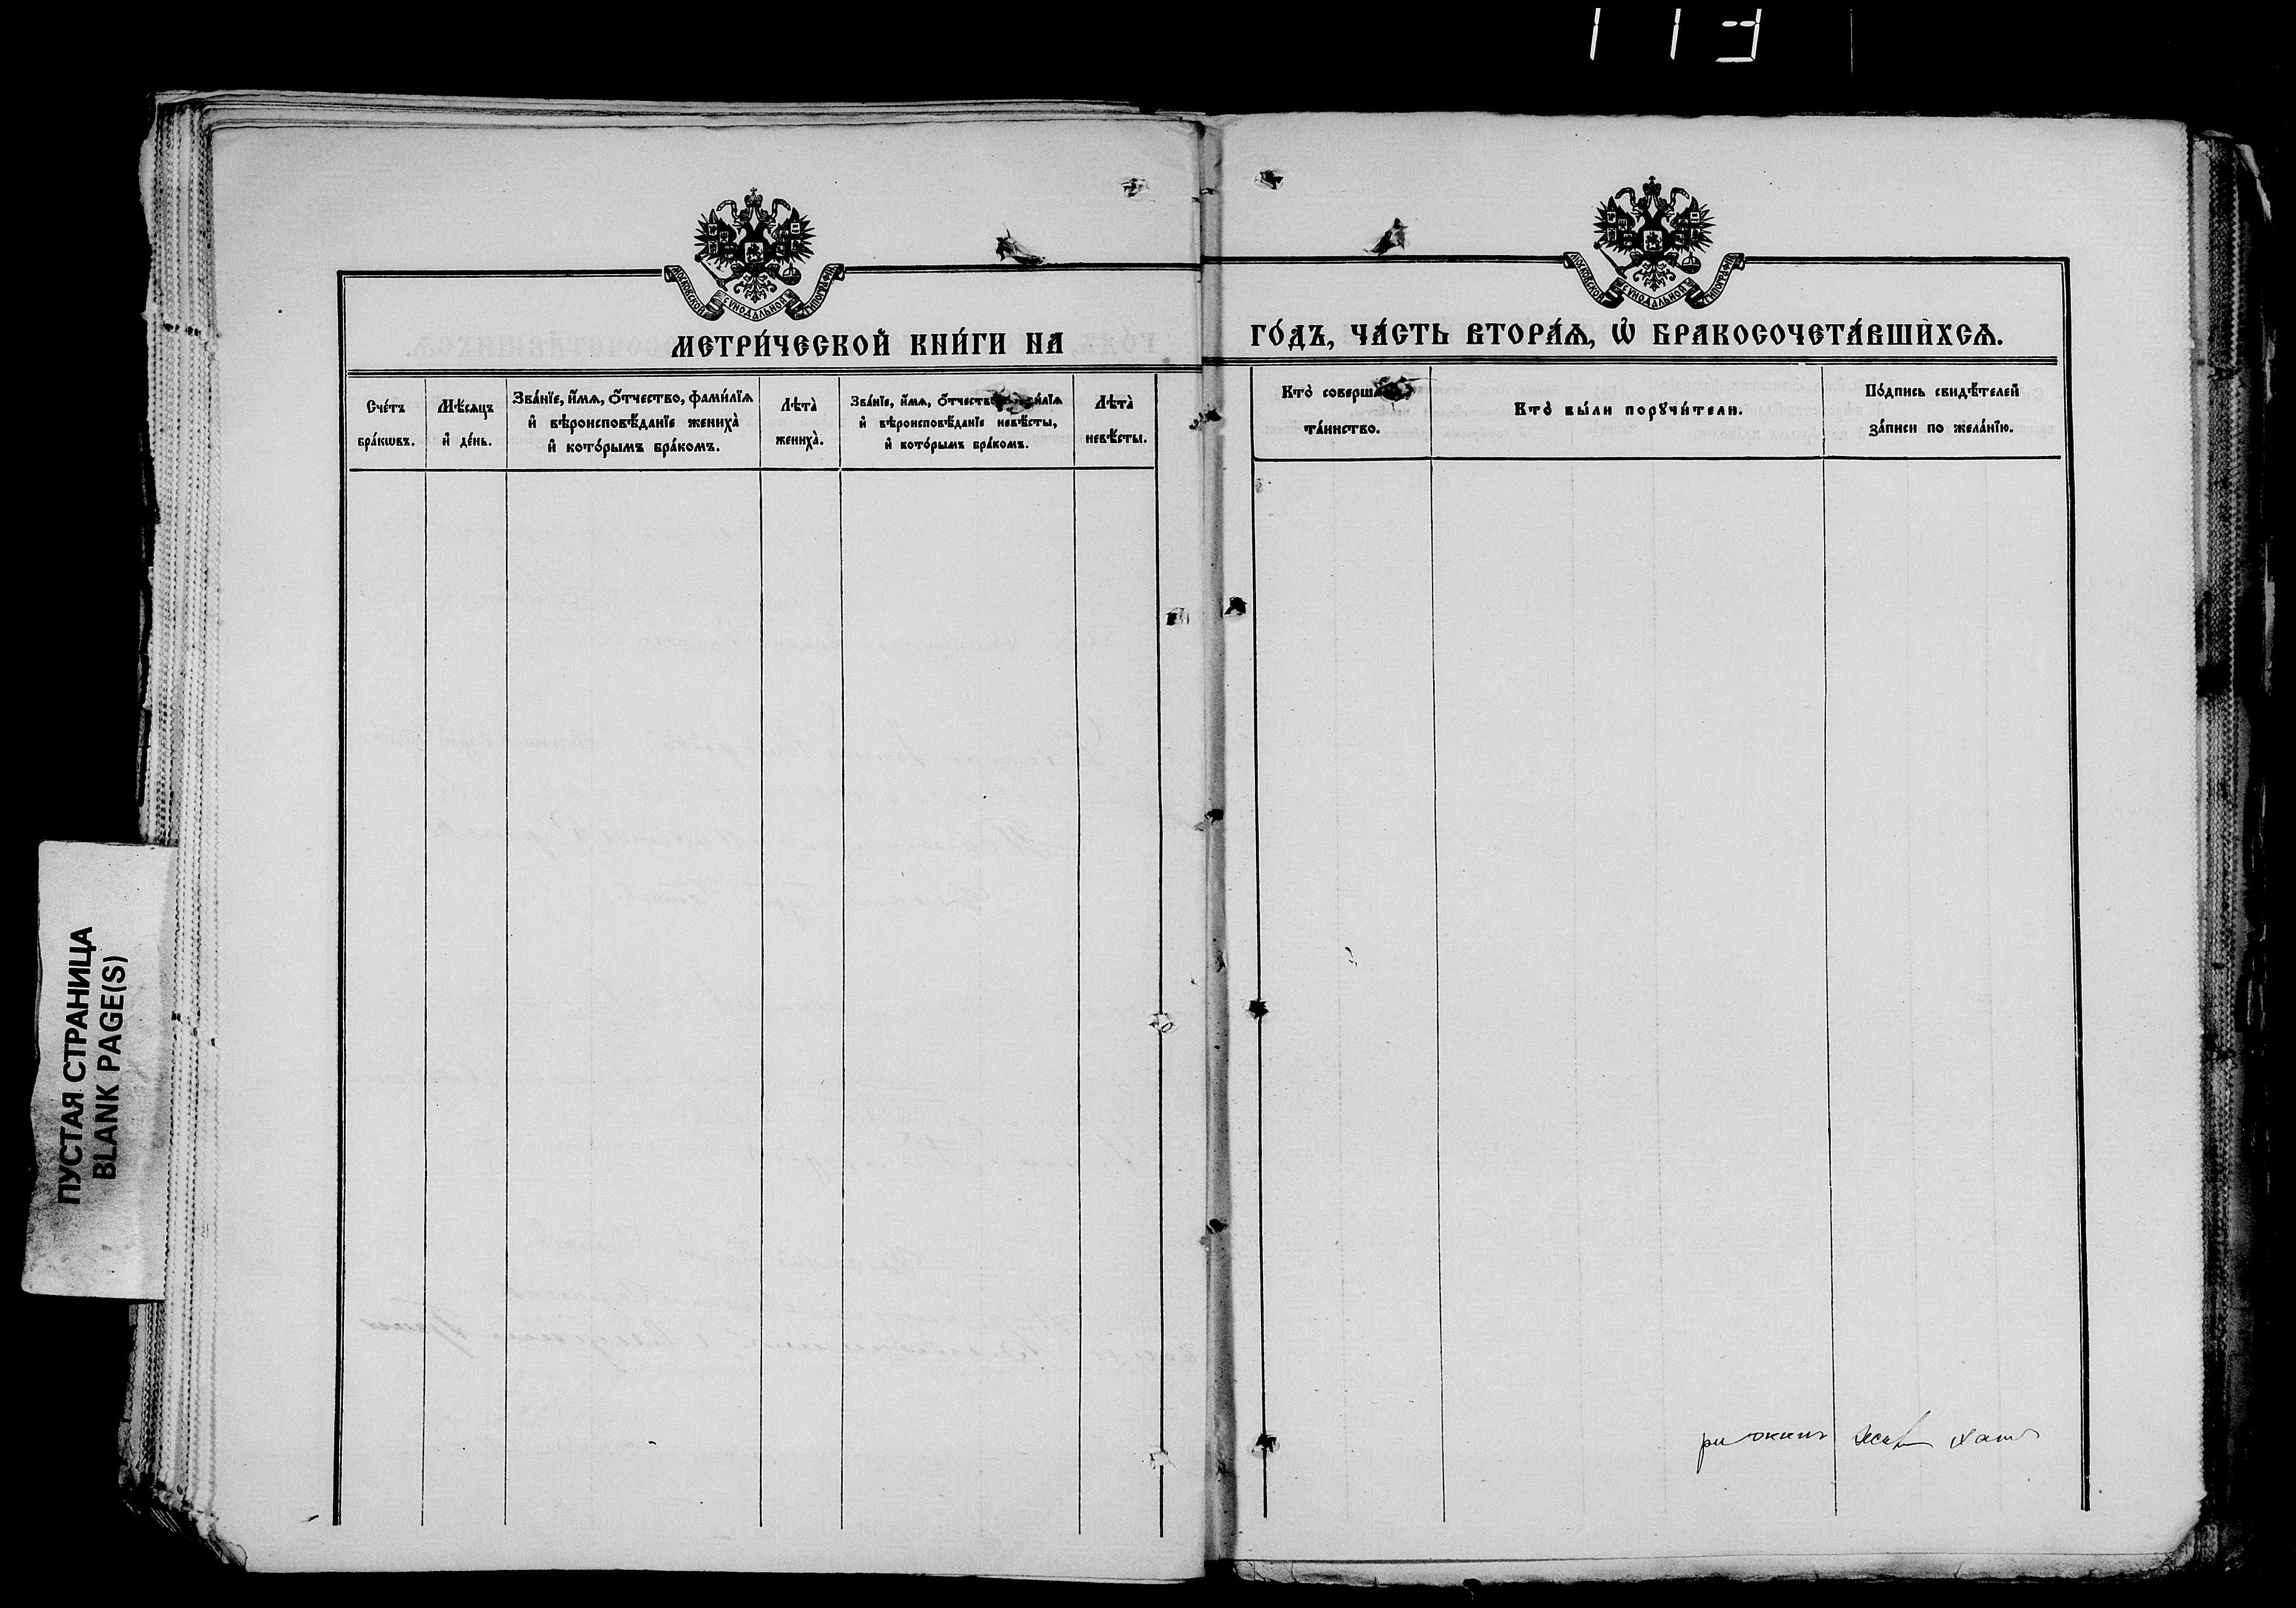 113
МОСКОВСКОЙ СѴНОДАЛЬНОЙ ТИПОГРАФІИ
МОСКОВСКОЙ СѴНОДАЛЬНОЙ ТИПОГРАФІИ
МЕТРИ́ЧЕСКОЙ КНИ́ГИ НА ГО́ДЪ, ЧА́СТЬ ВТОРА́Ѧ, Ѽ БРАКОСОЧЕТА́ВШИХСѦ.
Сче́тъ
бра́кѡвъ.
Мѣ́сѧцъ
и҆ де́нь.
Зва́нїе, и҆́мѧ, ѻ҆́тчество, фами́лїѧ
и҆ вѣроисповѣ́данїе жениха̀
и҆ кото́рымъ бра́комъ.
Лѣта̀
жениха̀.
Зва́нїе, и҆́мѧ, ѻ҆́тчество
и҆ вѣроисповѣ́данїе невѣ́сты,
и҆ кото́рымъ бра́комъ.
Лѣта̀
невѣ́сты.
Кто̀
та́инство.
Кто̀ бы́ли порꙋчи́тели.
По́дпись свидѣ́телей
за́писи по жела́нїю.
ПУСТАЯ СТРАНИЦА
BLANK PAGE(S)